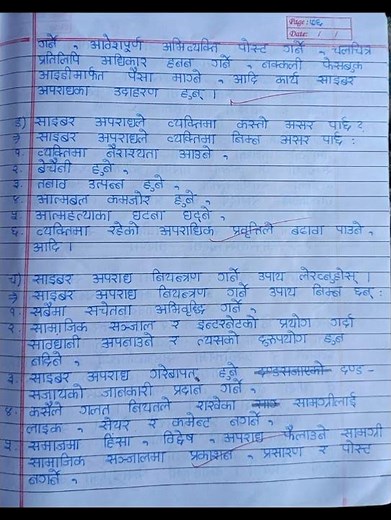 Page: ५६
Date: / /
गर्ने, आवेशपूर्ण अभिव्यक्ति पोस्ट गर्ने, चलचित्र
प्रतिलिपि अधिकार हनन गर्ने, नक्कली फेसबुक
आइडीमार्फत पैसा माग्ने, आदि कार्य साइबर
अपराधका उदाहरण हुन् ।
ङ) साइबर अपराधले व्यक्तिमा कस्तो असर पार्छ ?
साइबर अपराधले व्यक्तिमा निम्न असर पार्छ :
१. व्यक्तिमा नैराश्यता आउने,
२. बेचैनी हुने,
३. तनाव उत्पन्न हुने,
४. आत्मबल कमजोर हुने,
५. आत्महत्याका घटना घट्ने,
६. व्यक्तिमा रहेको अपराधिक प्रवृत्तिले बढावा पाउने,
आदि ।
च) साइबर अपराध नियन्त्रण गर्ने उपाय लेख्नुहोस् ।
साइबर अपराध नियन्त्रण गर्ने उपाय निम्न छन् :
१. सबैमा सचेतना अभिवृद्धि गर्ने,
२. सामाजिक सञ्जाल र इन्टरनेटको प्रयोग गर्दा
सावधानी अपनाउने र त्यसको दुरुपयोग हुन
नदिने,
३. साइबर अपराध गरेबापत् हुने दण्ड -
सजायको जानकारी प्रदान गर्ने,
४. कसैले गलत नियतले राखेका सामग्रीलाई
लाइक, सेयर र कमेन्ट नगर्ने,
५. समाजमा हिंसा, विद्वेष, अपराध फैलाउने सामग्री
सामाजिक सञ्जालमा प्रकाशन, प्रसारण र पोस्ट
नगर्ने,